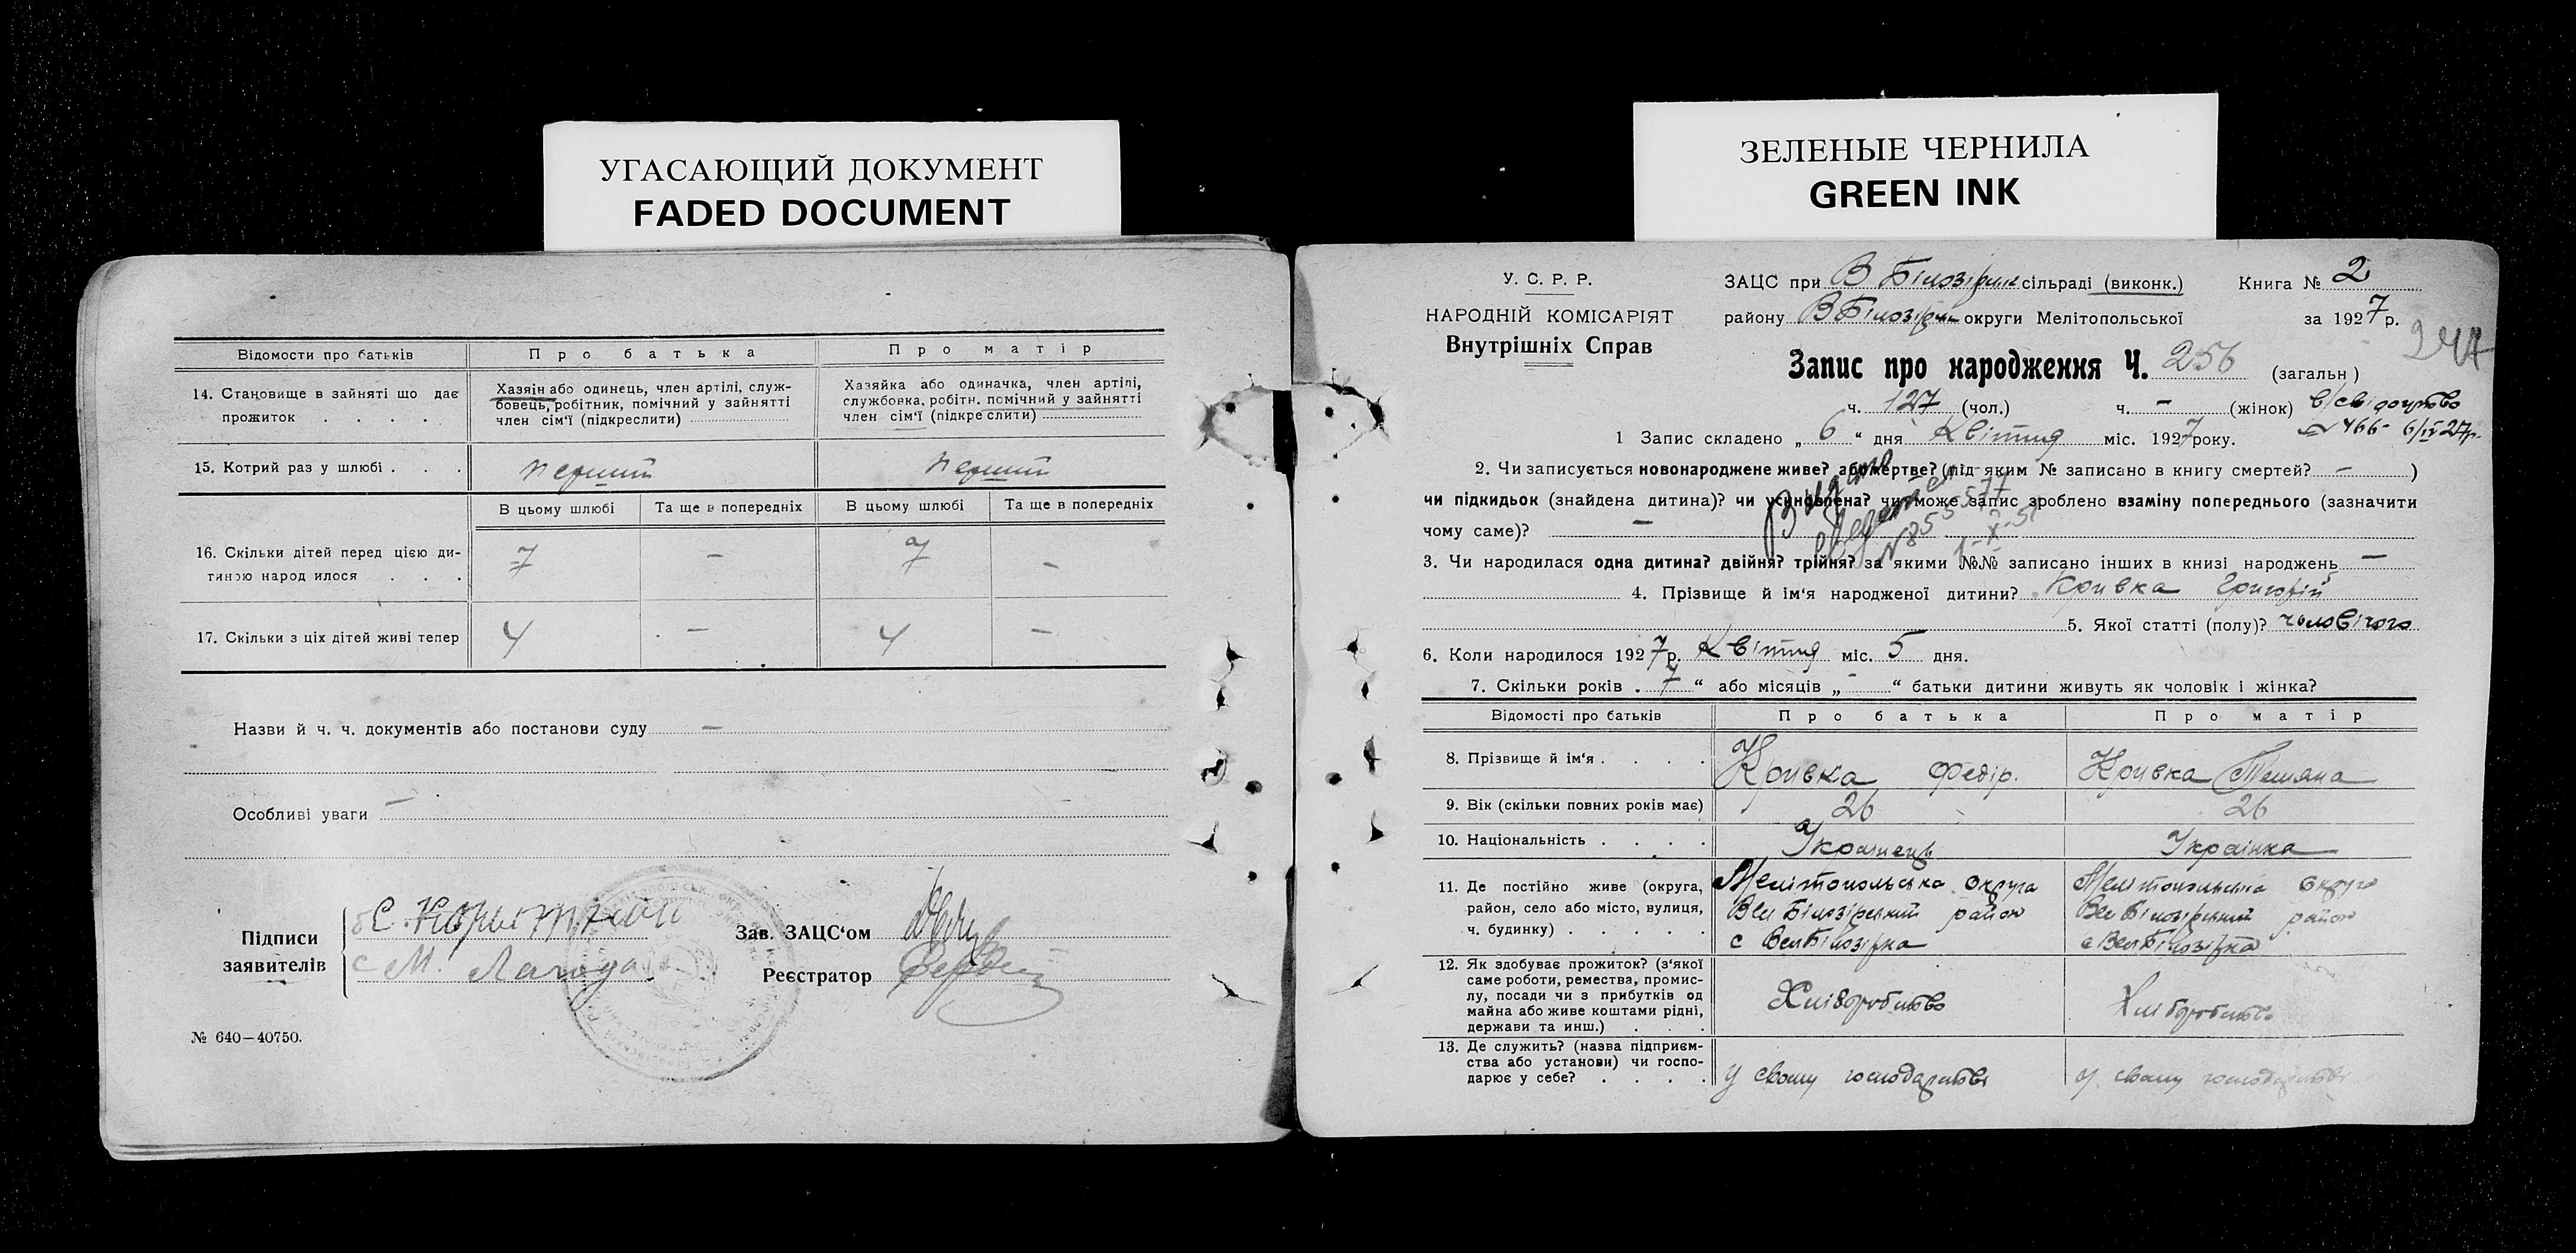 УГАСАЮЩИЙ ДОКУМЕНТ
FADED DOCUMENT
Відомости про батьків
Про батька
Про матір
14. Становище в зайняті що дає
прожиток . . . .
Хазяїн або одинець, член артілі, служ-
бовець, робітник, помічний у зайнятті
член сім'ї (підкреслити)
Хазяйка або одиначка, член артілі,
службовка, робітн. помічний у зайнятті
член сім'ї (підкреслити)
15. Котрий раз у шлюбі . . .
перший
перший
В цьому шлюбі
Та ще в попередніх
В цьому шлюбі
Та ще в попередніх
16. Скільки дітей перед цією ди-
тиною народилося . . .
7 – 7 –
17. Скільки з ціх дітей живі тепер
4 – 4 –
Назви й ч. ч. документів або постанови суду –
Особливі уваги –
Підписи
заявителів
М. Лагода
Зав. ЗАЦС'ом
Реєстратор
№ 640–40750.
ЗЕЛЕНЫЕ ЧЕРНИЛА
GREEN INK
У. С. Р. Р.
НАРОДНІЙ КОМІСАРІЯТ
Внутрішніх Справ
ЗАЦС при В Білозірськ сільраді (виконк.) Книга № 2
району В Білозірськ округи Мелітопольської за 1927 р.
247
Запис про народження Ч. 256 (загальн)
ч. 127 (чол.) ч. – (жінок)
в/свідоцтво
№ 466 6/IV 27р.
1 Запис складено „ 6 “ дня Квітня міс. 1927 року.
2. Чи записується новонароджене живе? або мертве? (під яким № записано в книгу смертей? – )
чи підкидьок (знайдена дитина)? чи усиновлена? чи може запис зроблено взаміну попереднього (зазначити
чому саме)? –
Видано
3. Чи народилася одна дитина? двійня? трійня? за якими №№ записано інших в книзі народжень –
4. Прізвище й ім'я народженої дитини? Кривка Григорій
5. Якої статті (полу)? чоловічого
6. Коли народилося 1927 р. Квітня міс. 5 дня.
7. Скільки років . 7 “ або місяців „ – “ батьки дитини живуть як чоловік і жінка?
Відомості про батьків
Про батька
Про матір
8. Прізвище й ім'я . . . .
Кривка Федір.
Кривка Тетяна
9. Вік (скільки повних років має)
26
26
10. Національність . . . .
Українець
Українка
11. Де постійно живе (округа,
район, село або місто, вулиця,
ч. будинку) . . . . .
Мелітопольська округа
Вел Білозірський район
с Вел Білозірка
Мелітопольська округа
Вел Білозірський район
с Вел Білозірка
12. Як здобуває прожиток? (з'якої
саме роботи, ремества, промис-
лу, посади чи з прибутків од
майна або живе коштами рідні,
держави та инш.) . . .
Хліборобство
Хліборобство
13. Де служить? (назва підприєм-
ства або установи) чи госпо-
дарює у себе? . . . .
у свому господарстві
у свому господарстві